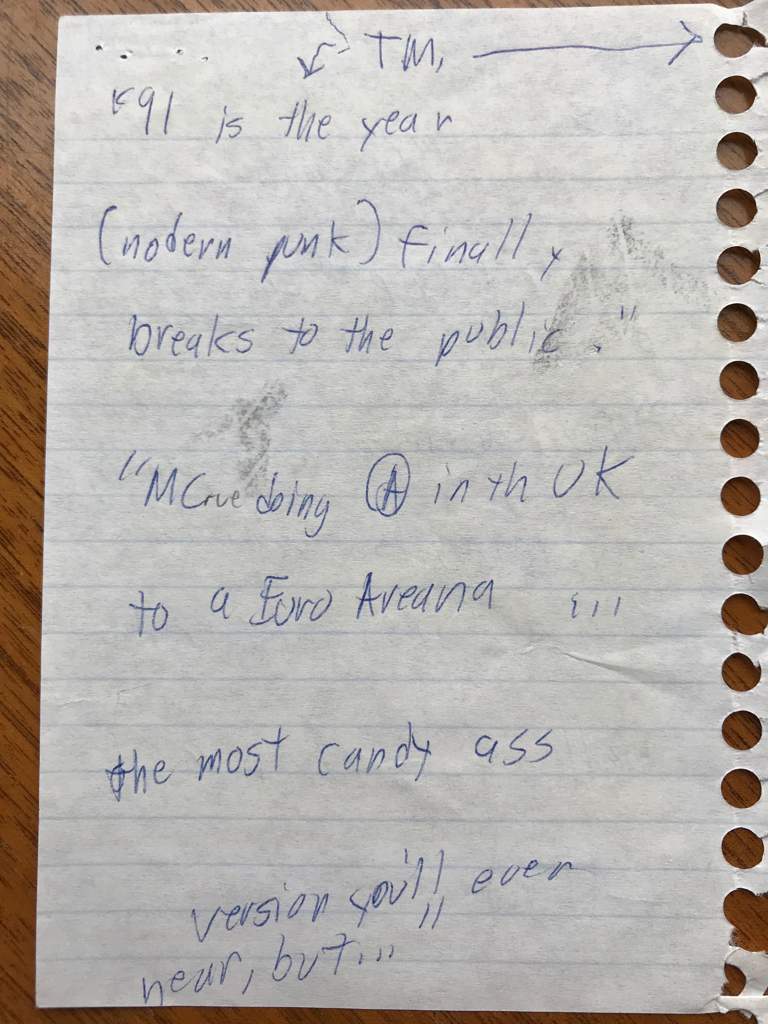 TM,
"91 is the year
(nodern punk) finally
breaks to the public."
"MCrue doing Ⓐ in th UK
to a Euro Areana ...
the most candy ass
version you'll ever
hear, but..."